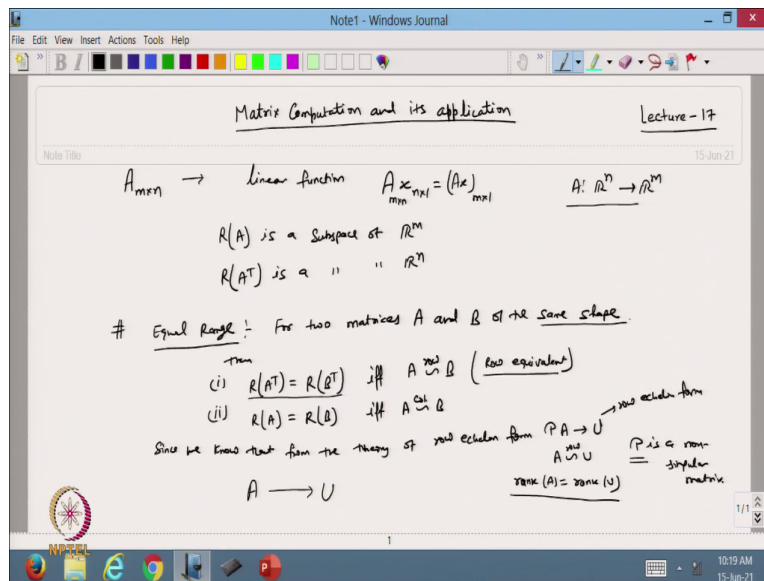 Note1 - Windows Journal
File Edit View Insert Actions Tools Help
B I
Matrix Computation and its application
Lecture - 17
Note Title
15-Jun-21
A m×n → linear function A m×n x n×1 = (Ax) m×1 A: ℝⁿ → ℝᵐ
R(A) is a subspace of ℝᵐ
R(Aᵀ) is a " " ℝⁿ
# Equal Range :- For two matrices A and B of the same shape.
then
(i) R(Aᵀ) = R(Bᵀ) iff A row ~ B (Row equivalent)
(ii) R(A) = R(B) iff A col ~ B
Since we know that from the theory of row echelon form PA → U → row echelon form
A row ~ U P is a non-singular matrix
rank (A) = rank (U)
A ⟶ U
NPTEL
1/1
1
10:19 AM
15-Jun-21